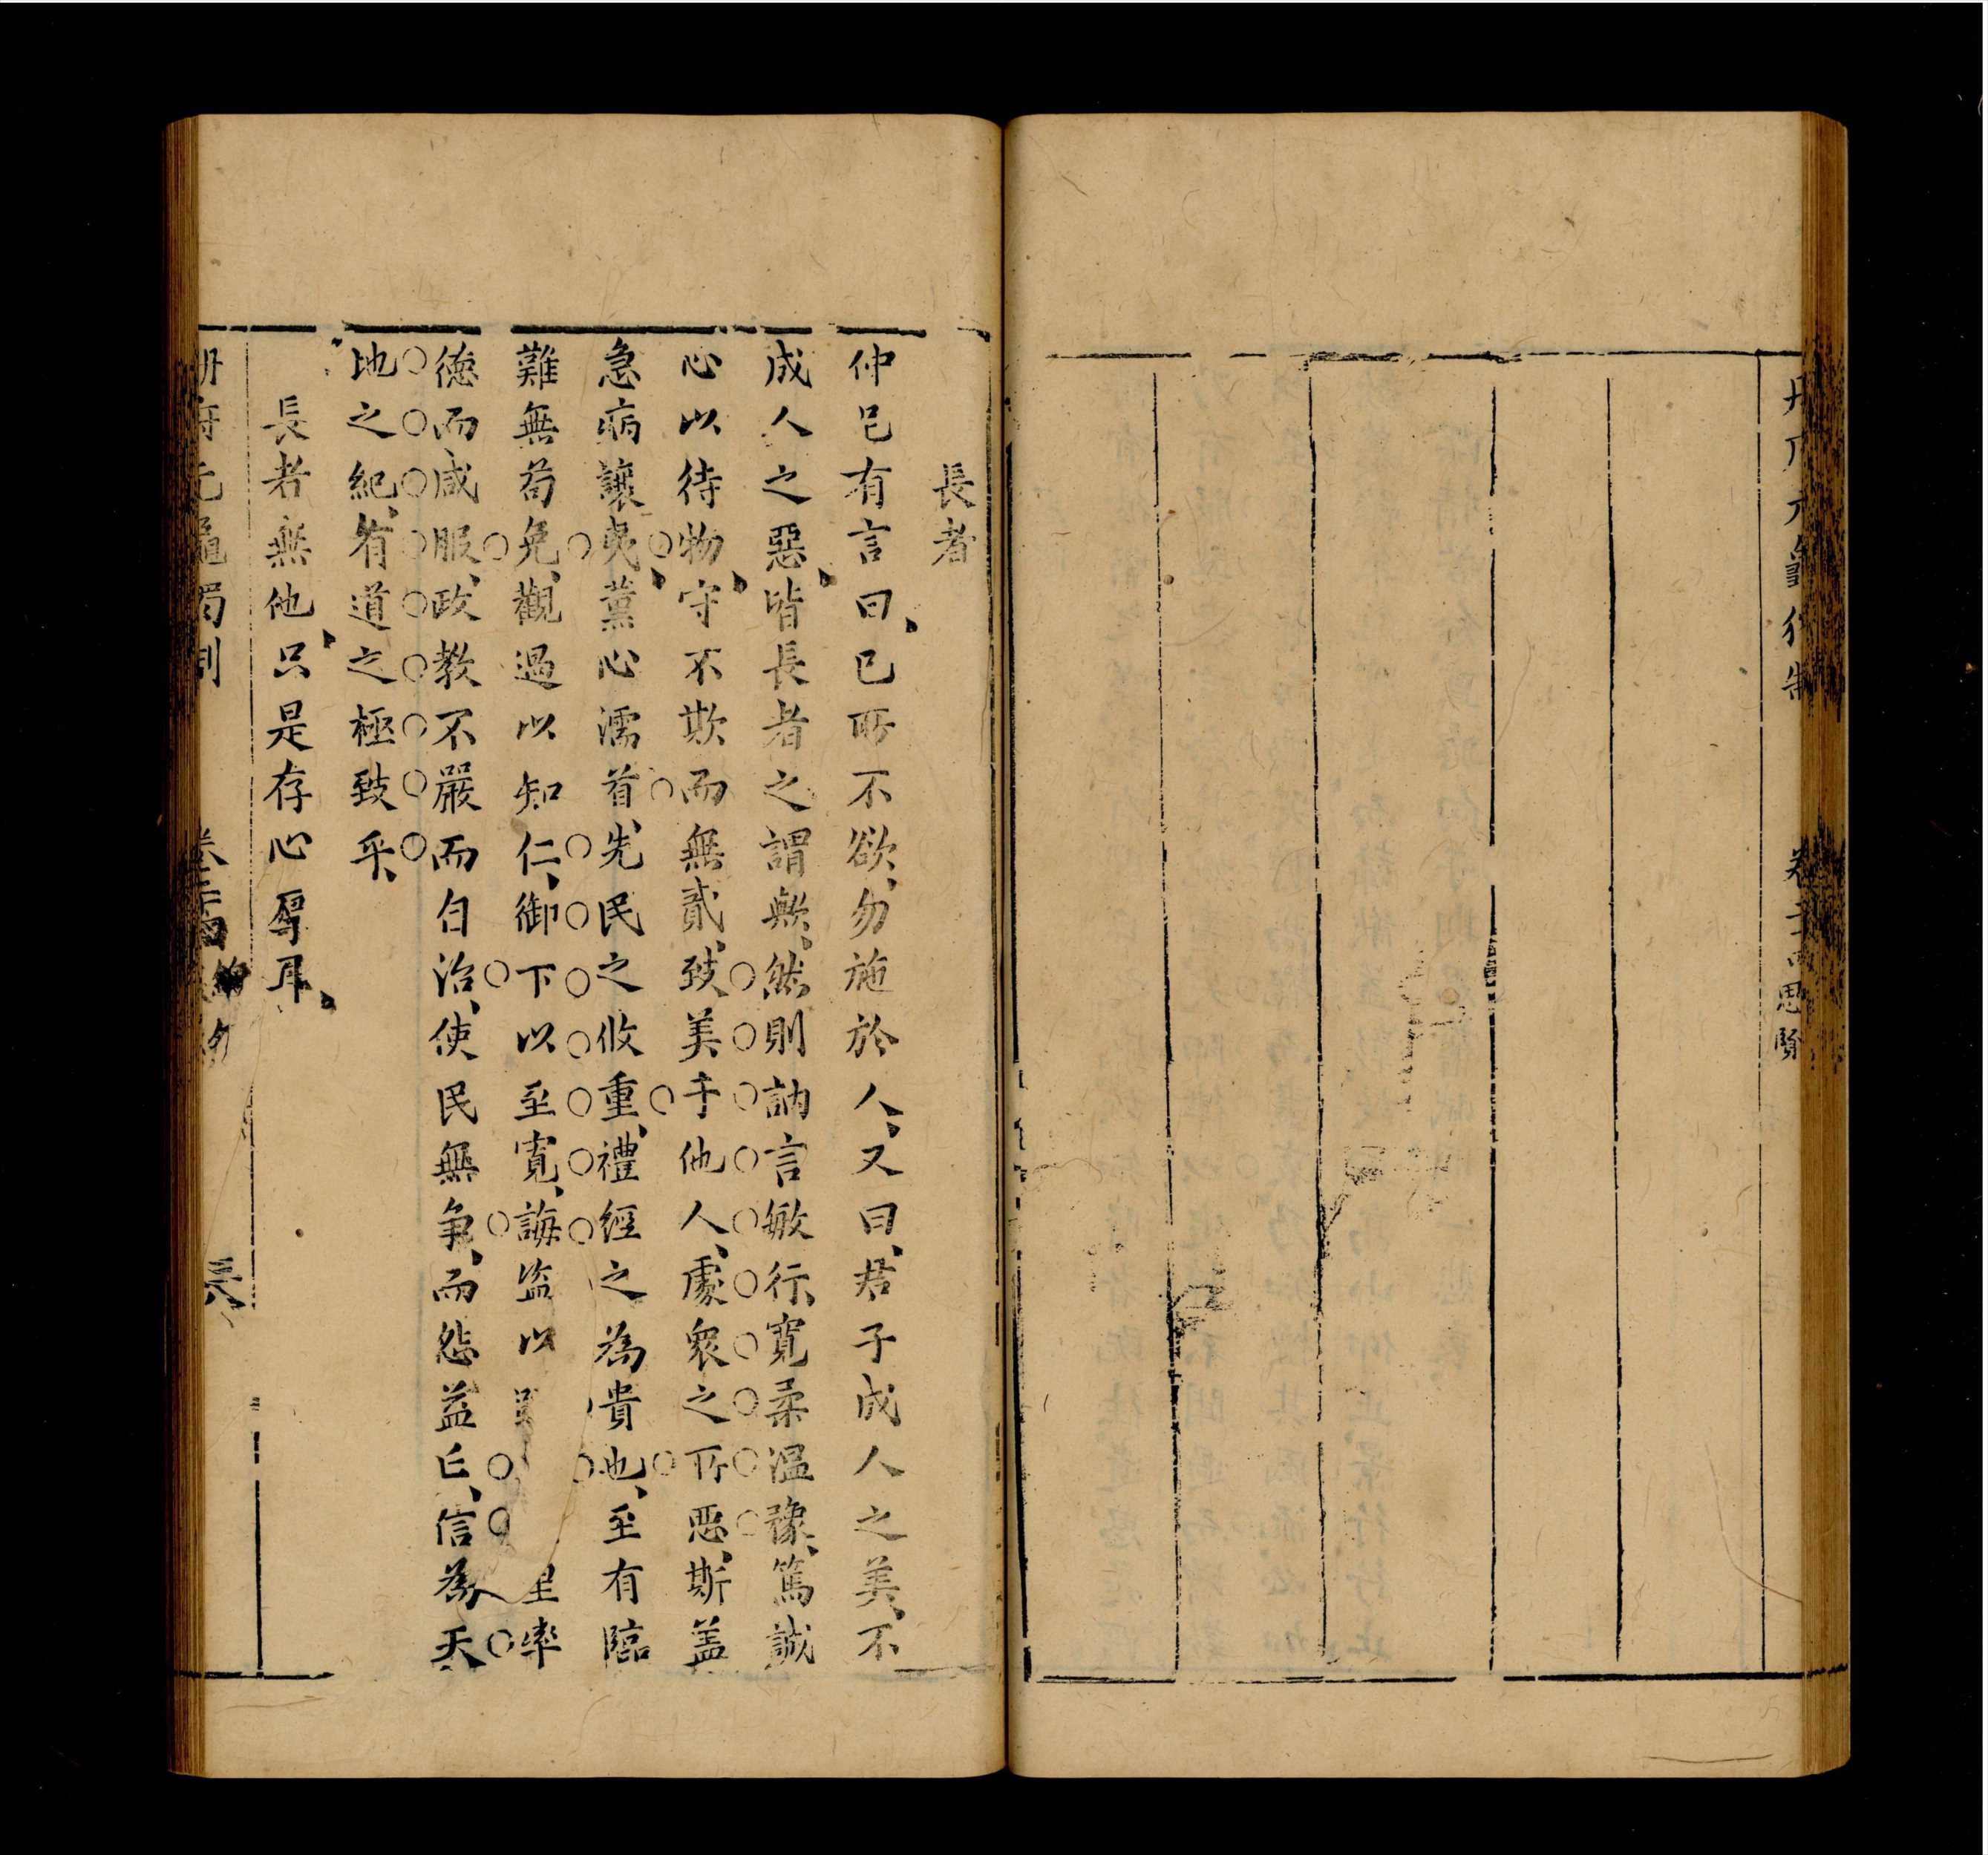 思賢
長者
仲尼有言曰己所不欲勿施於人又曰君子成人之美不
成人之惡皆長者之謂歟然則訥言敏行寬柔溫豫篤誠
心以待物守不欺而無貳致美于他人處衆之所惡斯盖
急病讓夷薰心濡首先民之攸重禮經之為貴也至有臨
難無苟免觀過以知仁御下以至寬誨盜以 率
德而咸服政教不嚴而自治使民無爭而怨益亡信為天
地之紀有道之極致乎
長者無他只是存心厚耳
長